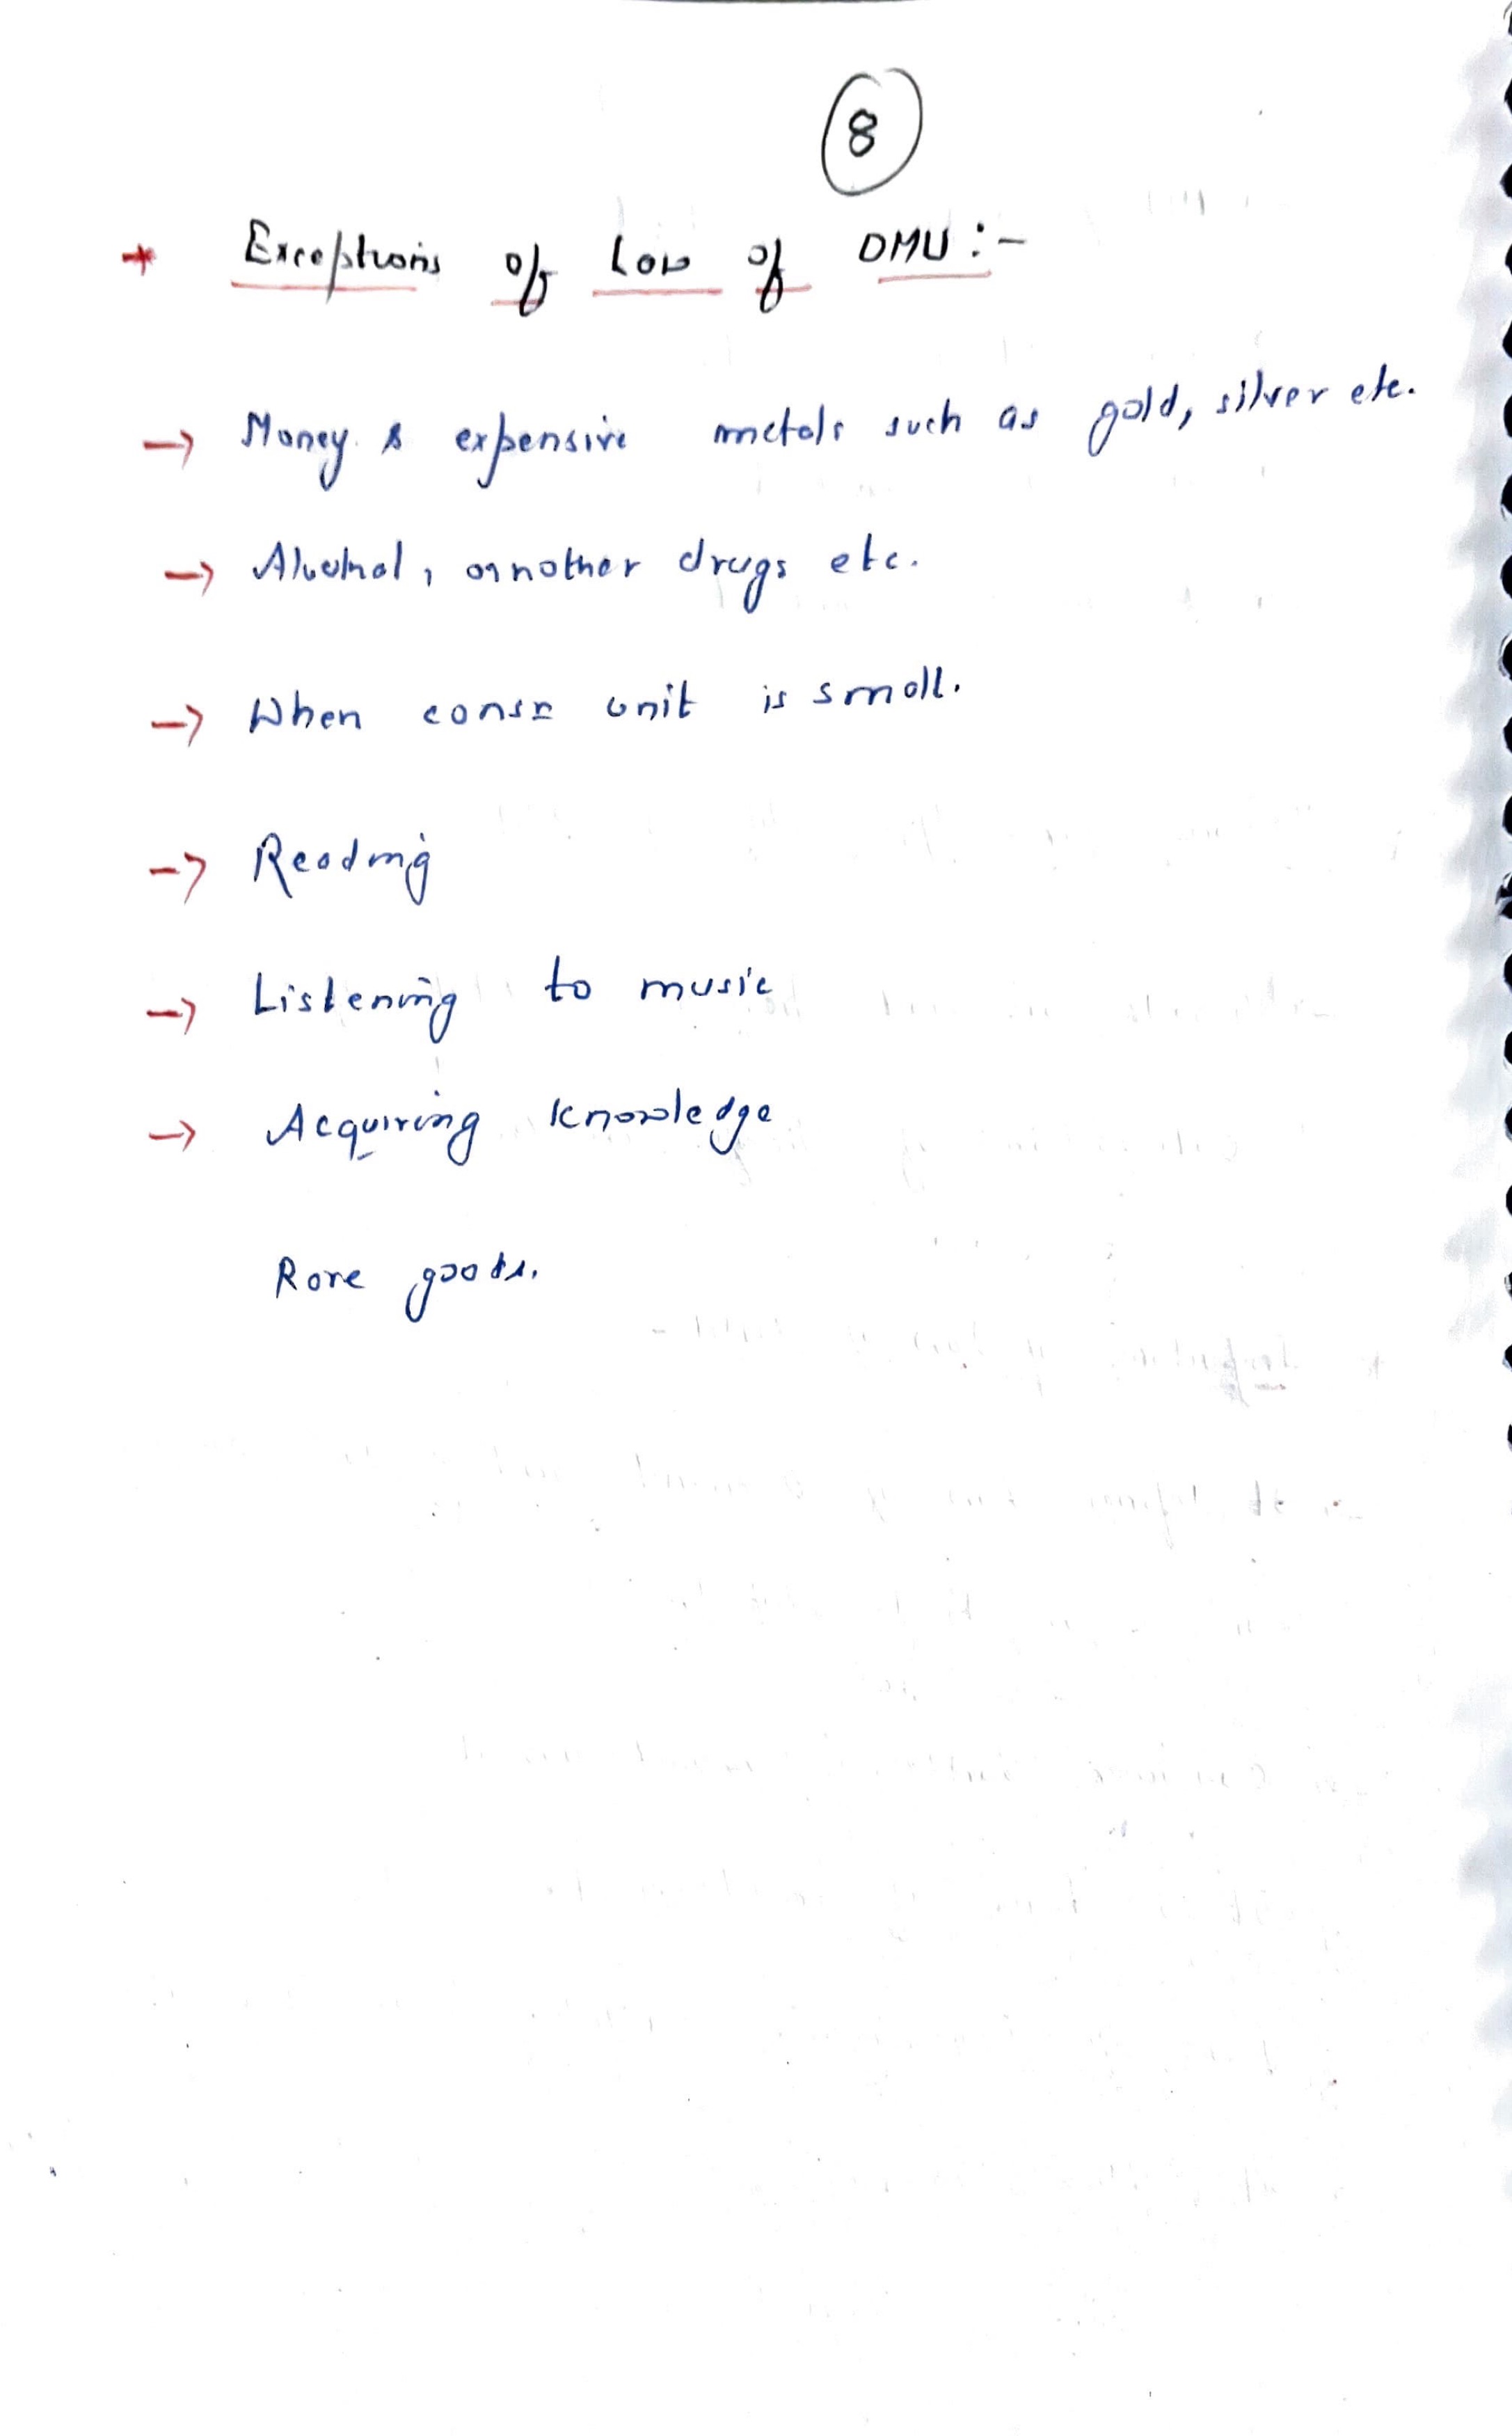 8
Exceptions of Law of DMU:-
→ Money & expensive metals such as gold, silver etc.
→ Alcohal, another drugs etc.
→ When consn unit is small.
→ Reading
→ Listening to music
→ Acquiring knowledge
Rare goods.